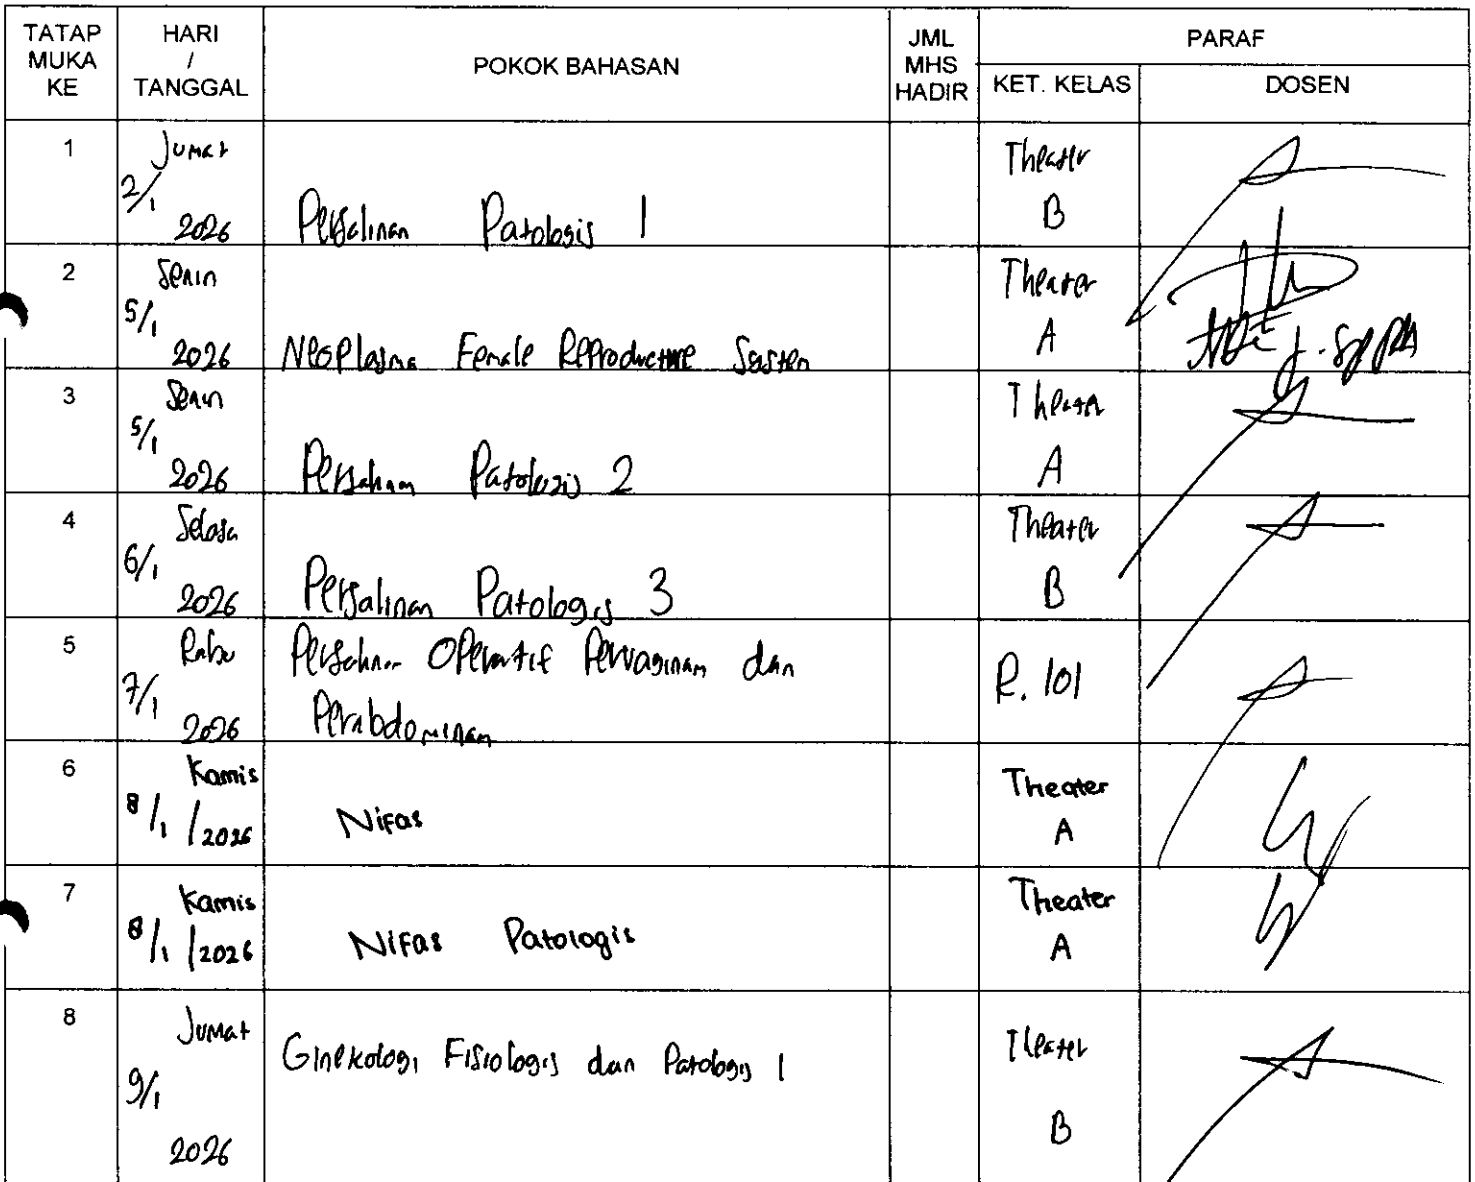 TATAP MUKA KE
HARI / TANGGAL
POKOK BAHASAN
JML MHS HADIR
PARAF
KET. KELAS
DOSEN
1
Jumat
2/1
2026
Persalinan Patologis 1
Theater
B
2
Senin
5/1
2026
Neoplasma Female Reproductive System
Theater
A
3
Senin
5/1
2026
Persalinan Patologis 2
Theater
A
4
Selasa
6/1
2026
Persalinan Patologis 3
Theater
B
5
Rabu
7/1
2026
Persalinan Operatif Pervaginam dan
Perabdominam
R. 101
6
Kamis
8/1/2026
Nifas
Theater
A
7
Kamis
8/1/2026
Nifas Patologis
Theater
A
8
Jumat
9/1
2026
Ginekologi Fisiologis dan Patologis 1
Theater
B